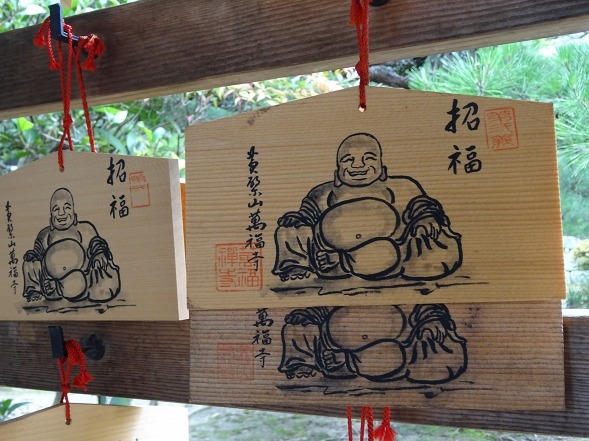 招福
黄檗山萬福寺
招福
黄檗山萬福寺
萬福
禪寺
萬福寺